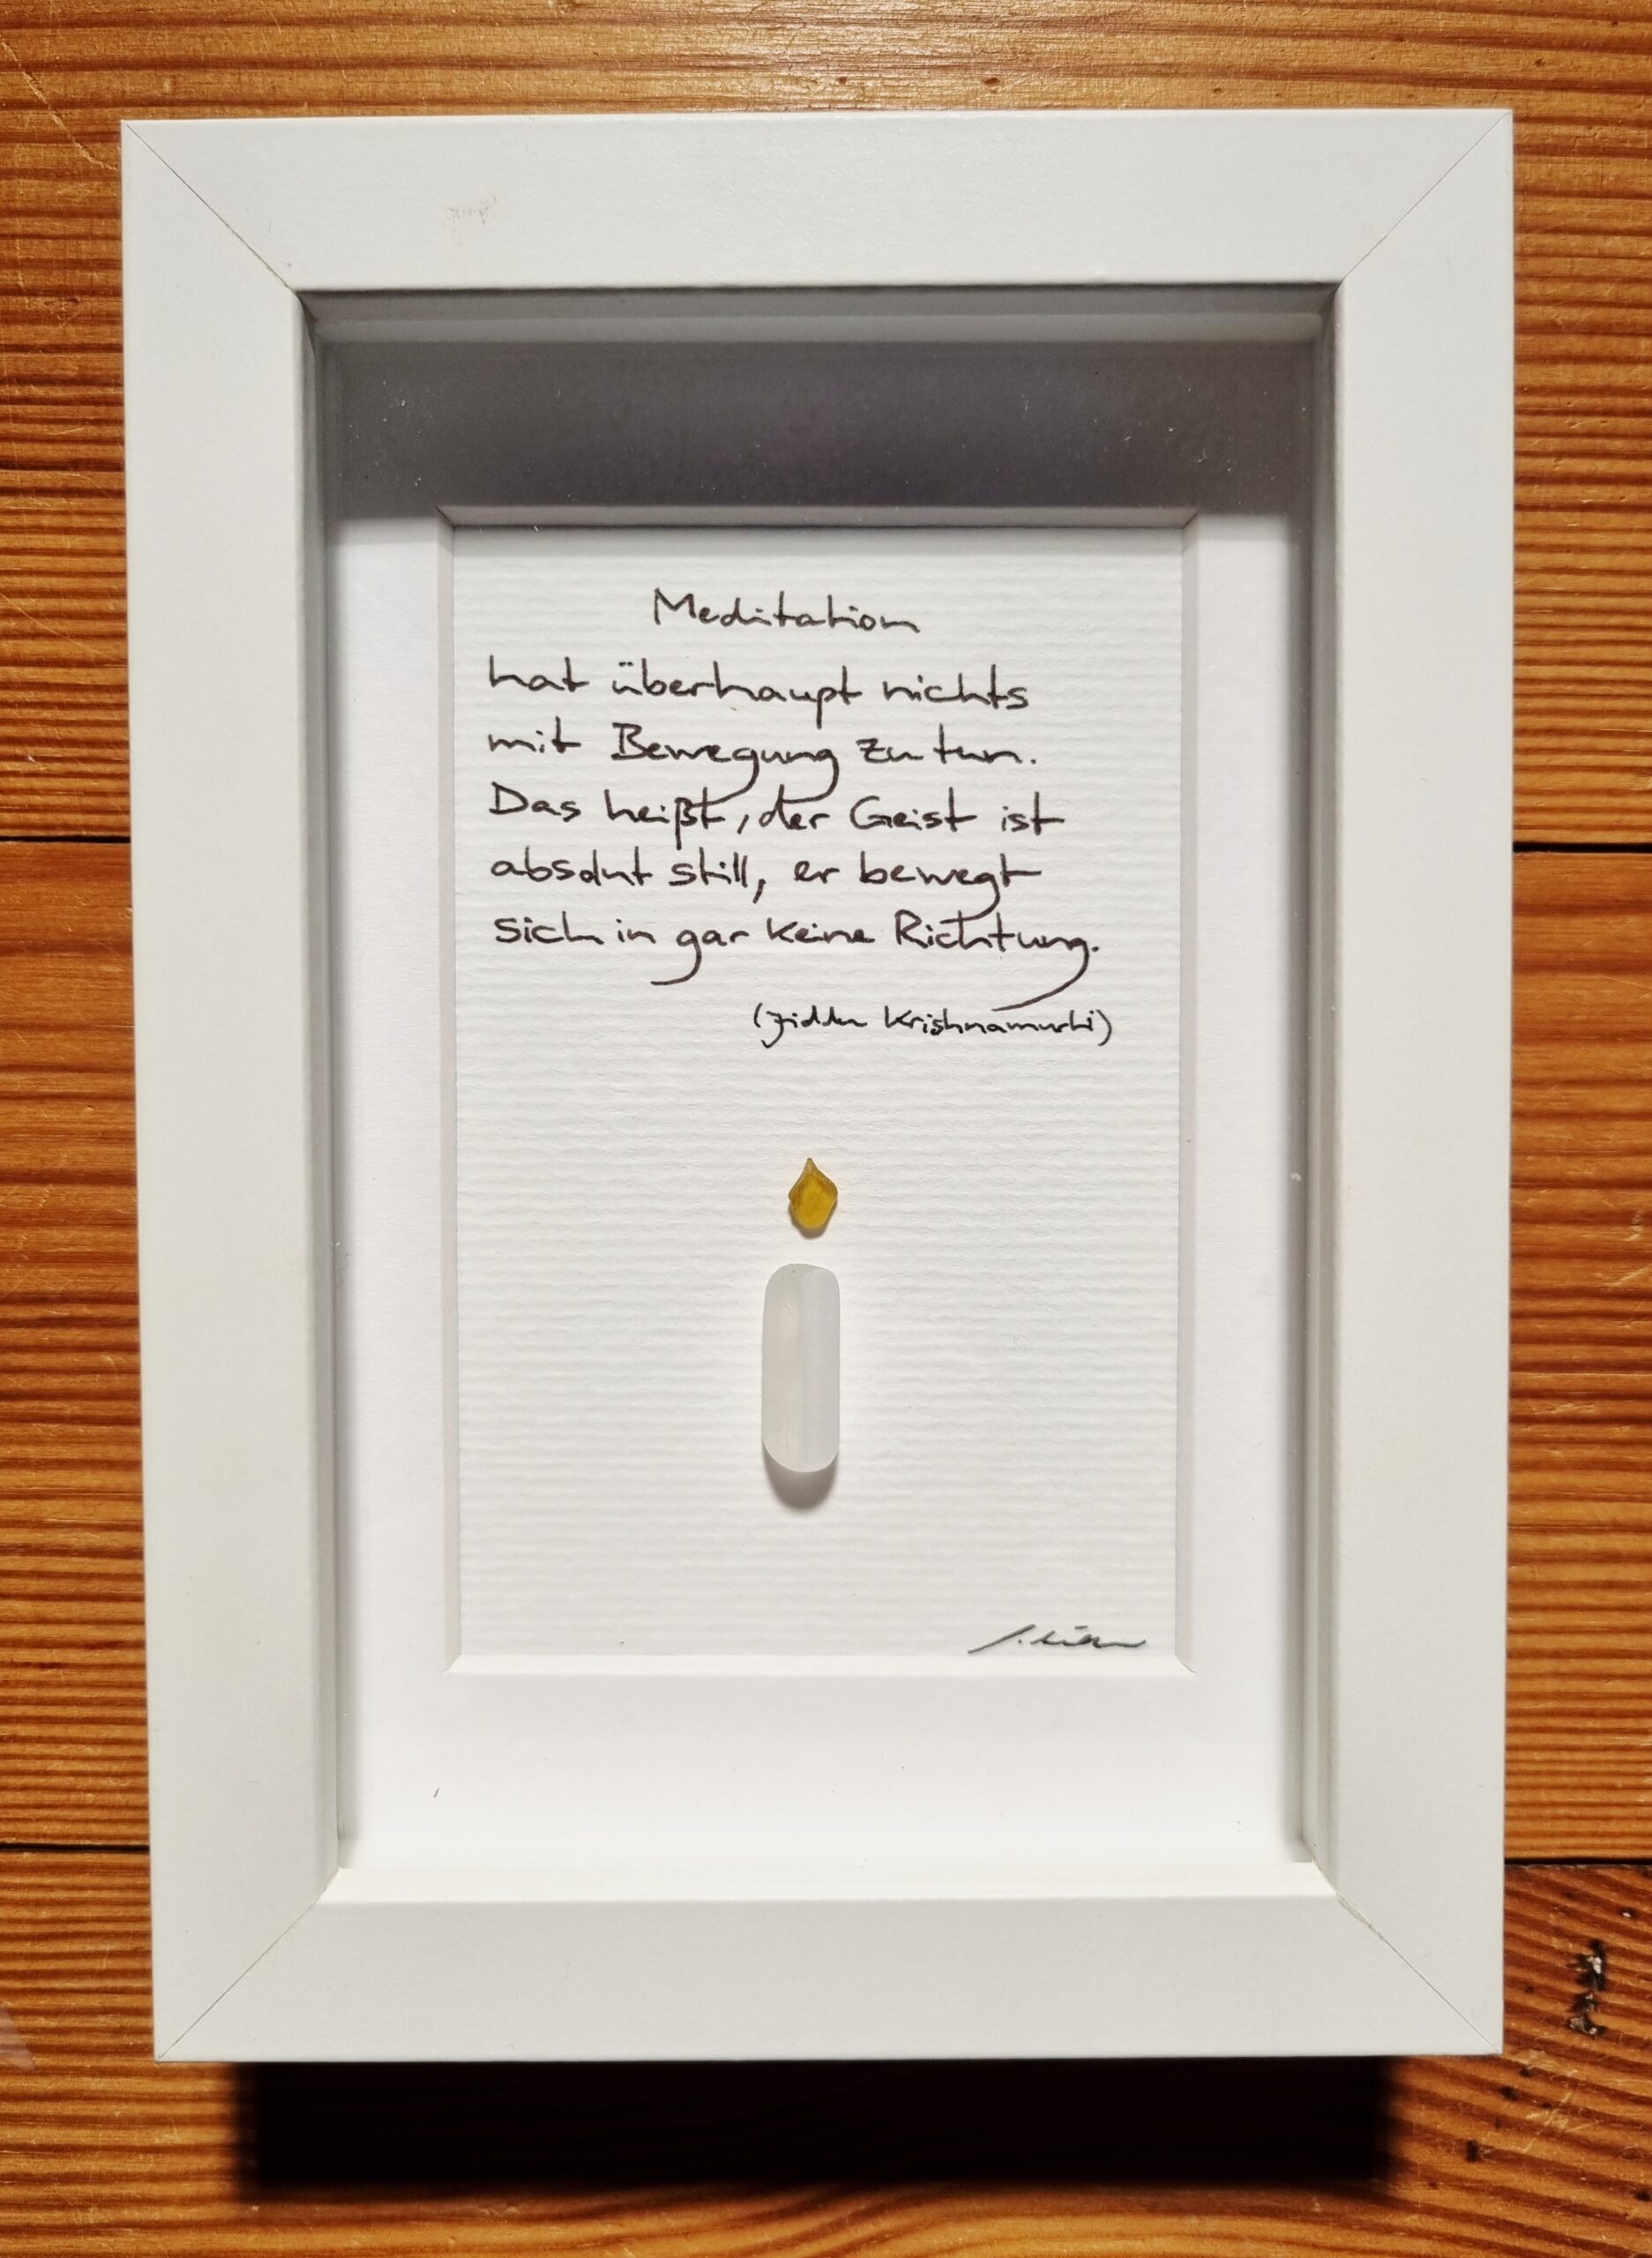 Meditation
hat überhaupt nichts
mit Bewegung zu tun.
Das heißt, der Geist ist
absolut still, er bewegt
sich in gar keine Richtung.
(Jiddu Krishnamurti)